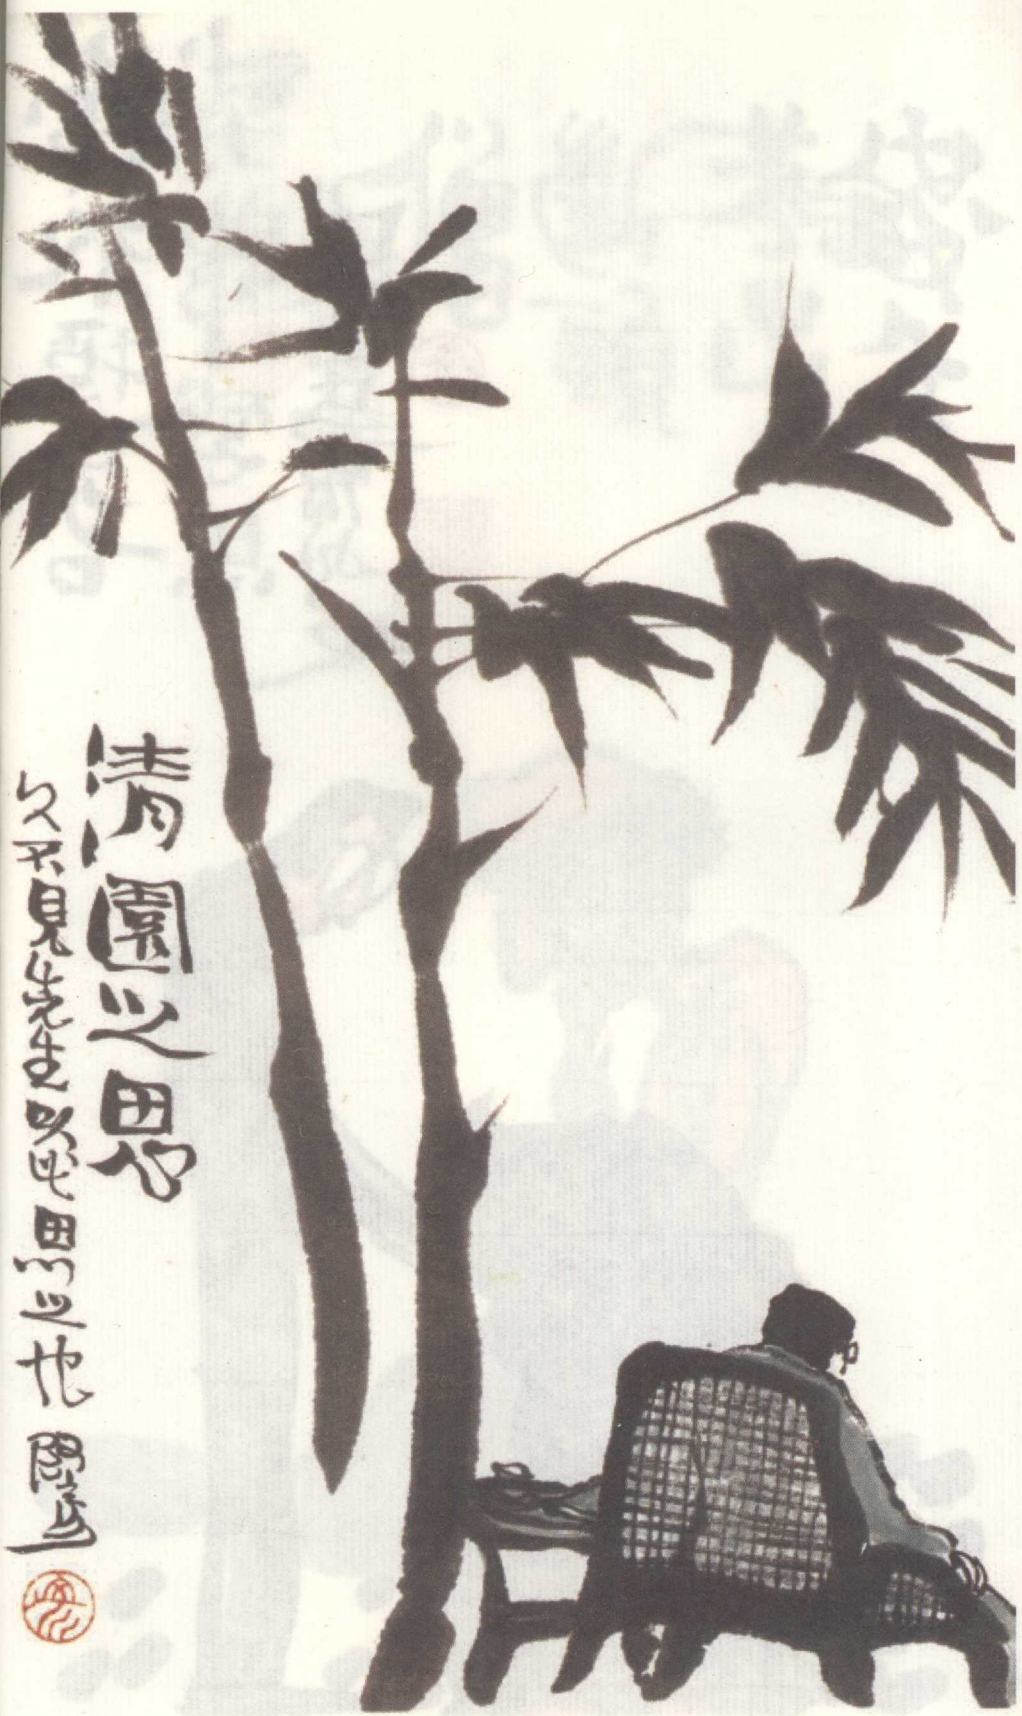 清園之思
久不見先生以此思之也